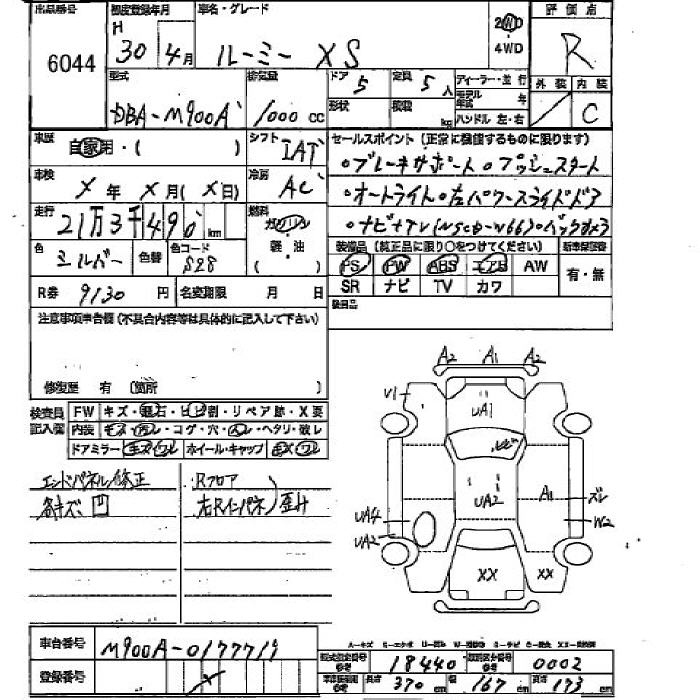 出品番号 初度登録年月 車名・グレード 評価点
6044 H 30年 4月 ルーミー XS 2WD 4WD R
型式 排気量 ドア 5 定員 5人 ディーラー・並行 外装 内装
DBA-M900A 1000cc 形状 積載 kg モデル年式 年 C
ハンドル 左・右
車歴 自家用・( ) シフト IAT セールスポイント(正常に機能するものに限ります)
○ブレーキサポート ○プッシュスタート
車検 X年 X月(X日) 冷房 AC ○オートライト ○左パワースライドドア
走行 21万3千490km 燃料 ガソリン 軽・油 ( ) ○ナビ+TV(NSCD-W66)○バックカメラ
色 シルバー 色替 色コード S28 装備品(純正品に限り○をつけてください) 新車保証書
PS PW ABS エアB AW 有・無
R券 9130円 名変期限 月 日 SR ナビ TV カワ
注意事項申告欄(不具合内容等は具体的に記入して下さい) 後日品
修復歴 有(箇所
検査員記入欄 FW キズ・飛石・ヒビ割・リペア跡・X要
内装 キズ・汚レ・コゲ・穴・ハレ・ヘタリ・破レ
ドアミラー キズ・ワレ ホイール・キャップ キズ・ワレ
エンドパネル修正 Rフロア
各キズ凹 右Rインパネ 歪み
A2 A1 A2
V1
UA1
A1 ズレ
UA2
UA4 W2
UA2
XX XX
車台番号 M900A-0177719
登録番号 X
A-キズ E-エクボ U-凹み W-補修跡 S-サビ C-腐食 XX-交換済
型式指定番号 参考 18440 類別区分番号 参考 0002
車庫証明用 参考 長さ 370cm 幅 167cm 高さ 173cm